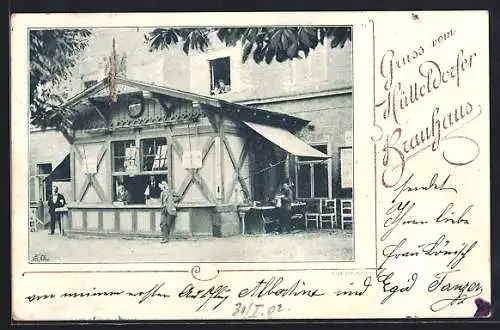 Gruss vom
Hütteldorfer
Brauhaus
sendet
Ihnen liebe
Frau König
von meinem ersten Ausflug Albertine und Egid Tanzer
31/I. 02.